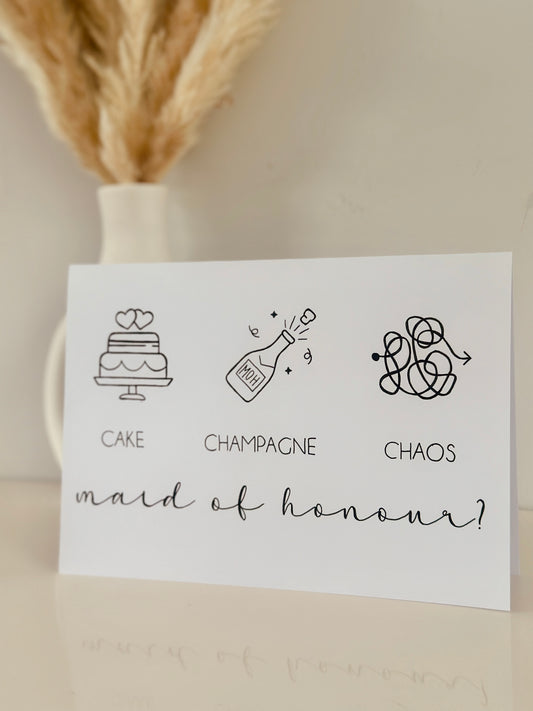 MOH
CAKE CHAMPAGNE CHAOS
maid of honour?